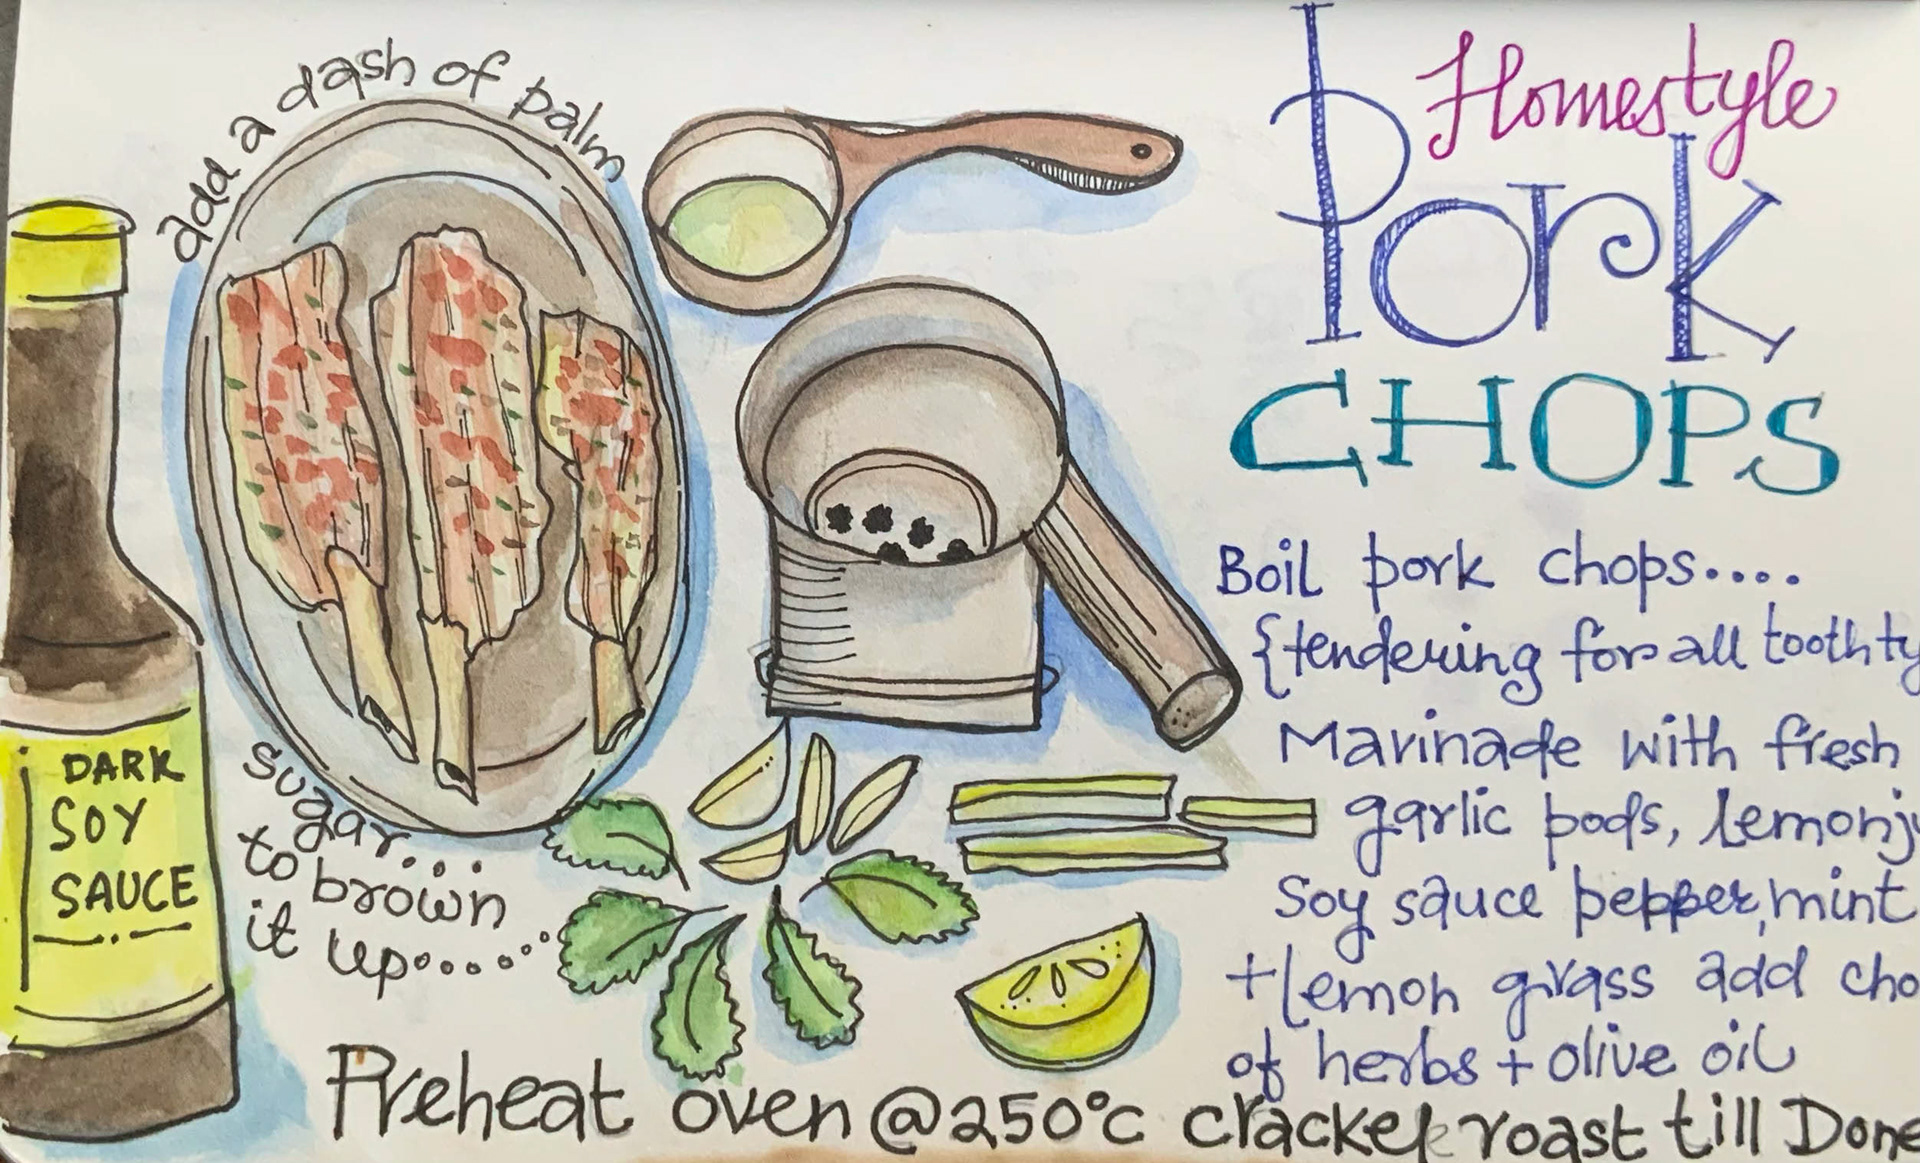 Homestyle
Pork
CHOPS
add a dash of palm
sugar...
to brown
it up.....
DARK
SOY
SAUCE
Boil pork chops....
{tendering for all tooth ty
Marinade with fresh
garlic pods, lemonj
Soy sauce pepper, mint
+ lemon grass add cho
of herbs + olive oil
Preheat oven @250°c cracker roast till Done